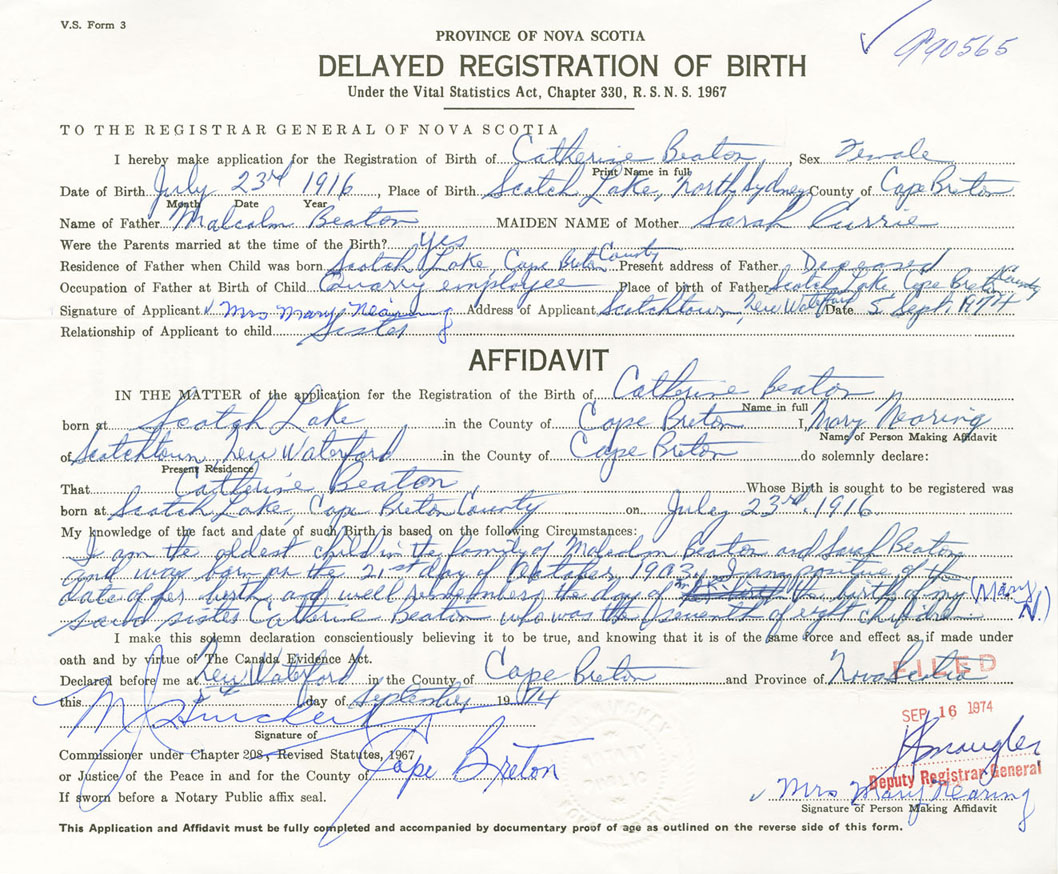 V.S. Form 3
990565
PROVINCE OF NOVA SCOTIA
DELAYED REGISTRATION OF BIRTH
Under the Vital Statistics Act, Chapter 330, R. S. N. S. 1967
TO THE REGISTRAR GENERAL OF NOVA SCOTIA
I hereby make application for the Registration of Birth of Catherine Beaton, Sex Female
Print Name in full
Date of Birth July 23rd 1916, Place of Birth Scotch Lake, North Sydney County of Cape Breton
Month Date Year
Name of Father Malcolm Beaton MAIDEN NAME of Mother Sarah Currie
Were the Parents married at the time of the Birth? yes
Residence of Father when Child was born Scotch Lake, Cape Breton County Present address of Father Deceased
Occupation of Father at Birth of Child Quarry employee Place of birth of Father Scotch Lake Cape Breton County
Signature of Applicant Mrs Mary Nearing Address of Applicant Scotchtown, New Waterford Date 5 Sept. 1974
Relationship of Applicant to child Sister
AFFIDAVIT
IN THE MATTER of the application for the Registration of the Birth of Catherine Beaton
Name in full
born at Scotch Lake in the County of Cape Breton I, Mary Nearing
Name of Person Making Affidavit
of Scotchtown, New Waterford in the County of Cape Breton do solemnly declare:
Present Residence
That Catherine Beaton, Whose Birth is sought to be registered was
born at Scotch Lake, Cape Breton County on July 23rd. 1916
My knowledge of the fact and date of such Birth is based on the following Circumstances:
I am the oldest child in the family of Malcolm Beaton and Sarah Beaton
and was born on the 21st day of October, 1903, I am positive of the
date of her birth, and well remembers the day of the birth of my (Mary N.)
said sister Catherine Beaton who was the seventh of eight children
I make this solemn declaration conscientiously believing it to be true, and knowing that it is of the same force and effect as if made under
oath and by virtue of The Canada Evidence Act.
Declared before me at New Waterford in the County of Cape Breton and Province of Nova Scotia
FILED
this 5th day of September 1974
SEP 16 1974
Signature of
Commissioner under Chapter 208, Revised Statutes, 1967
or Justice of the Peace in and for the County of Cape Breton
Deputy Registrar General
If sworn before a Notary Public affix seal.
Mrs Mary Nearing
Signature of Person Making Affidavit
This Application and Affidavit must be fully completed and accompanied by documentary proof of age as outlined on the reverse side of this form.